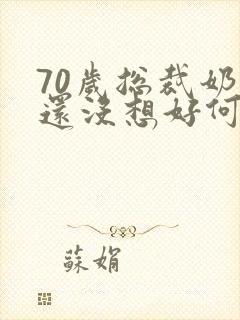 70歲總裁奶
還沒想好何
蘇娟